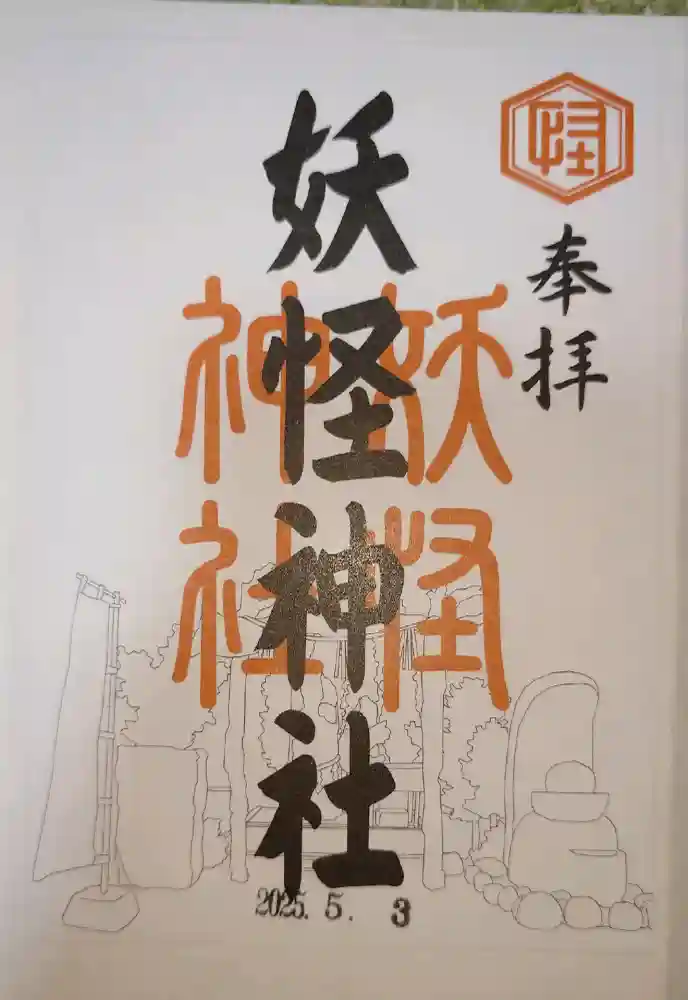 怪
奉拝
妖怪神社
妖怪
神社
2025. 5. 3